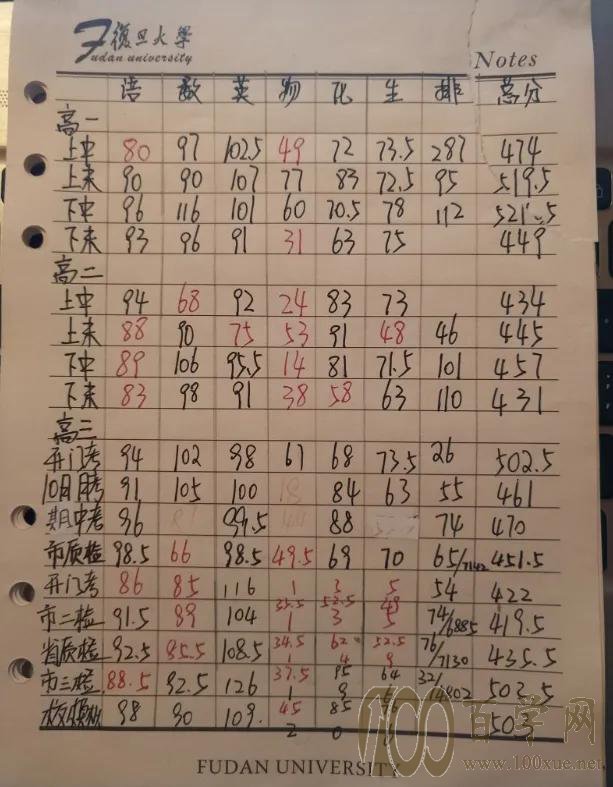 復旦大學
Fudan university
Notes
语 数 英 物 化 生 排 总分
高一
上中 80 97 102.5 49 72 73.5 287 474
上末 90 90 107 77 83 72.5 95 519.5
下中 96 116 101 60 70.5 78 112 521.5
下末 93 96 91 31 63 75 449
高二
上中 94 68 92 24 83 73 434
上末 88 90 75 53 91 48 46 445
下中 89 106 95.5 14 81 71.5 101 457
下末 83 98 91 38 58 63 110 431
高三
开门考 94 102 98 67 68 73.5 26 502.5
10月月考 91 105 100 18 84 63 55 461
期中考 96 99.5 88 74 470
市质检 98.5 66 98.5 49.5 69 70 65/7142 451.5
开门考 86 85 116 1 3 5 54 422
35.5 52.5 49
市二检 91.5 89 104 1 3 5 74/6885 419.5
34.5 62 52.5
省质检 92.5 85.5 108.5 1 4 9 76/7130 435.5
37.5 95 64
市三检 88.5 92.5 126 1 9 32/14802 503.5
45 85
98 90 109. 2 0
FUDAN UNIVERSITY
100百学网
www.100xue.net